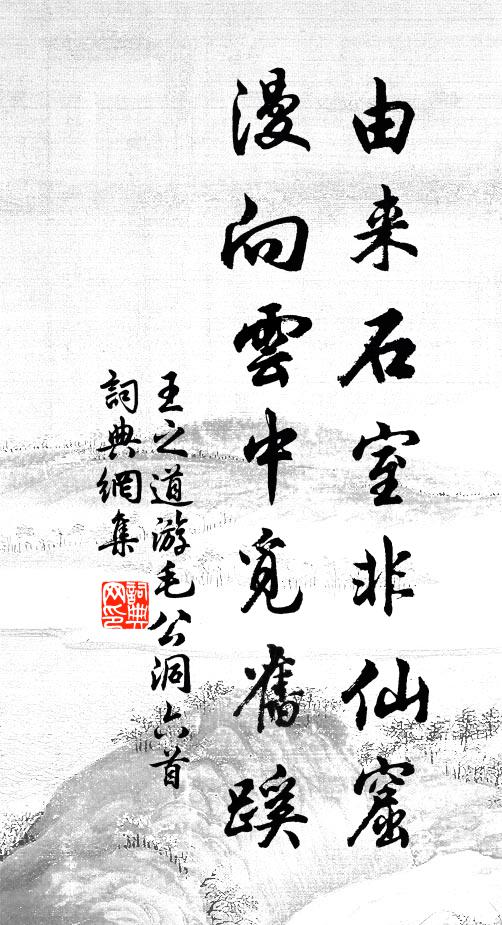 由来石室非仙窟
漫向雲中覓舊蹊
王之道游毛公洞六首
詞典網集
詞典網印